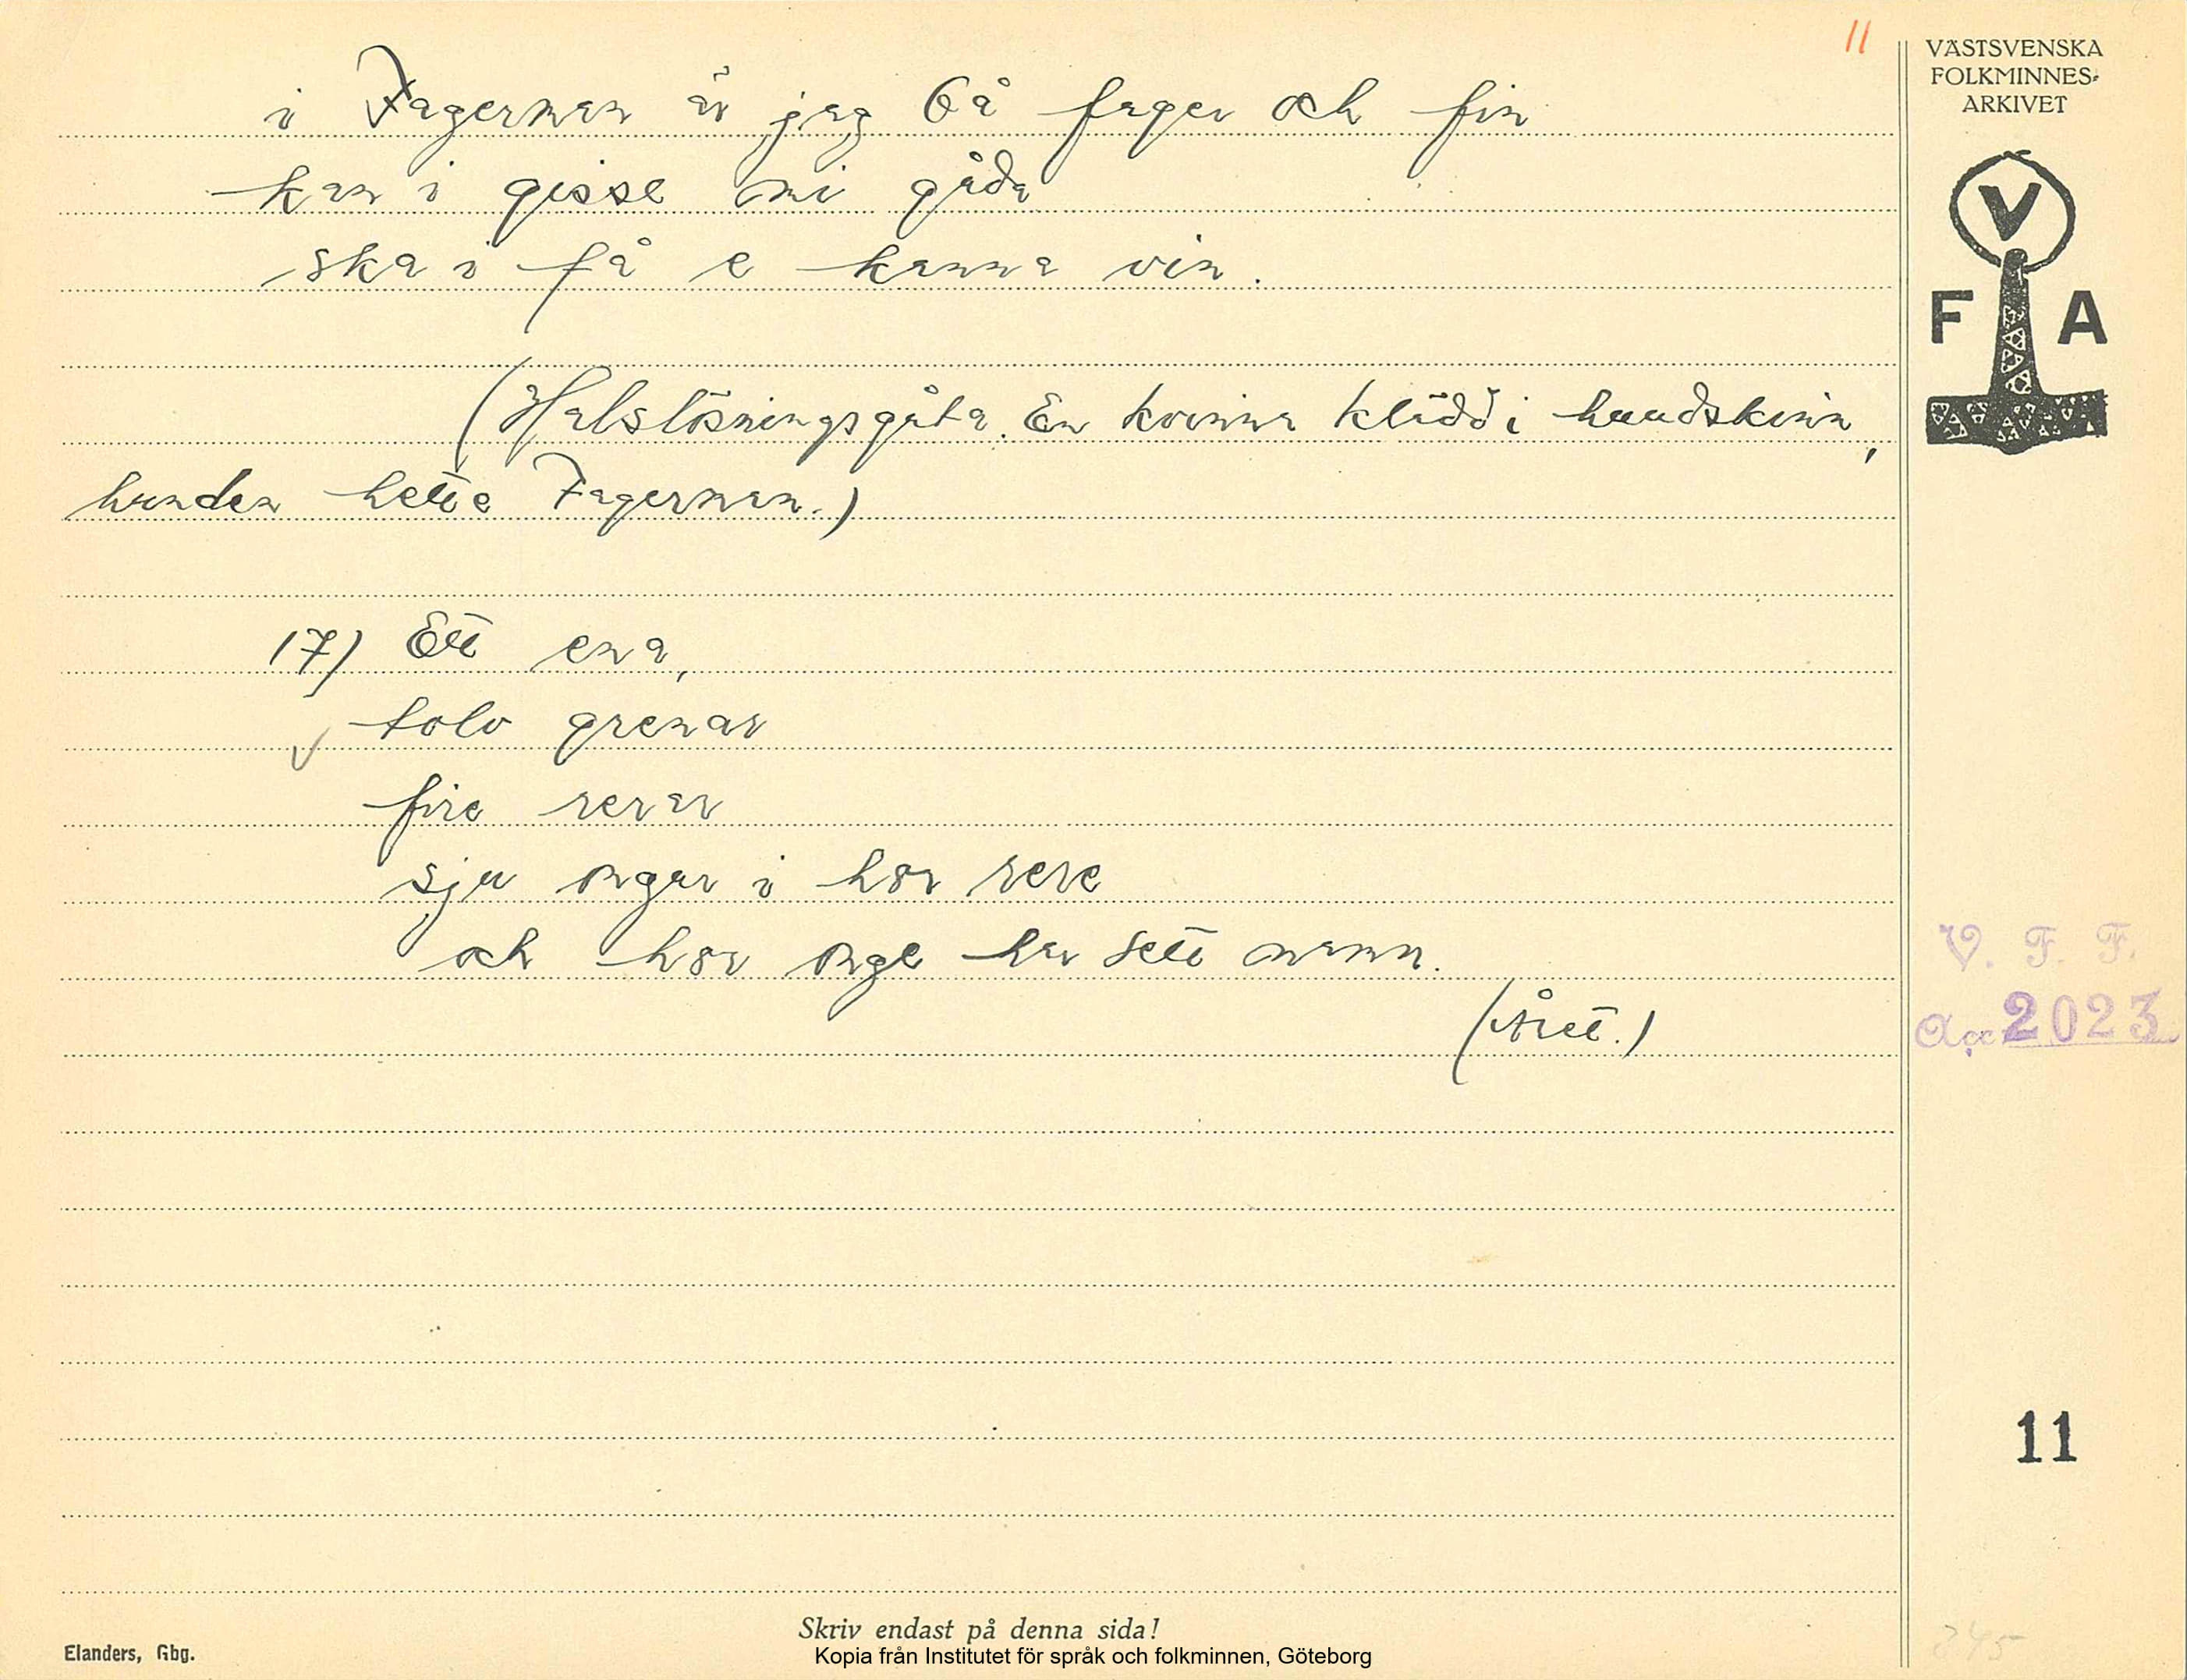 11
i Fagerman är jag bå fager och fin
kan i gisse mi gåda
ska i få e kanna vin.
(Halslösningsgåta. En kvinna klädd i hundskinn,
hunden hette Fagerman.)
17) Ett ena,
tolv grenar
fire rerar
sju ongar i hor rere
och hor onge har sett namn.
(Året.)
VÄSTSVENSKA
FOLKMINNES-
ARKIVET
V
F A
V. F. F.
Acc 2023
11
345
Skriv endast på denna sida!
Elanders, Gbg.
Kopia från Institutet för språk och folkminnen, Göteborg